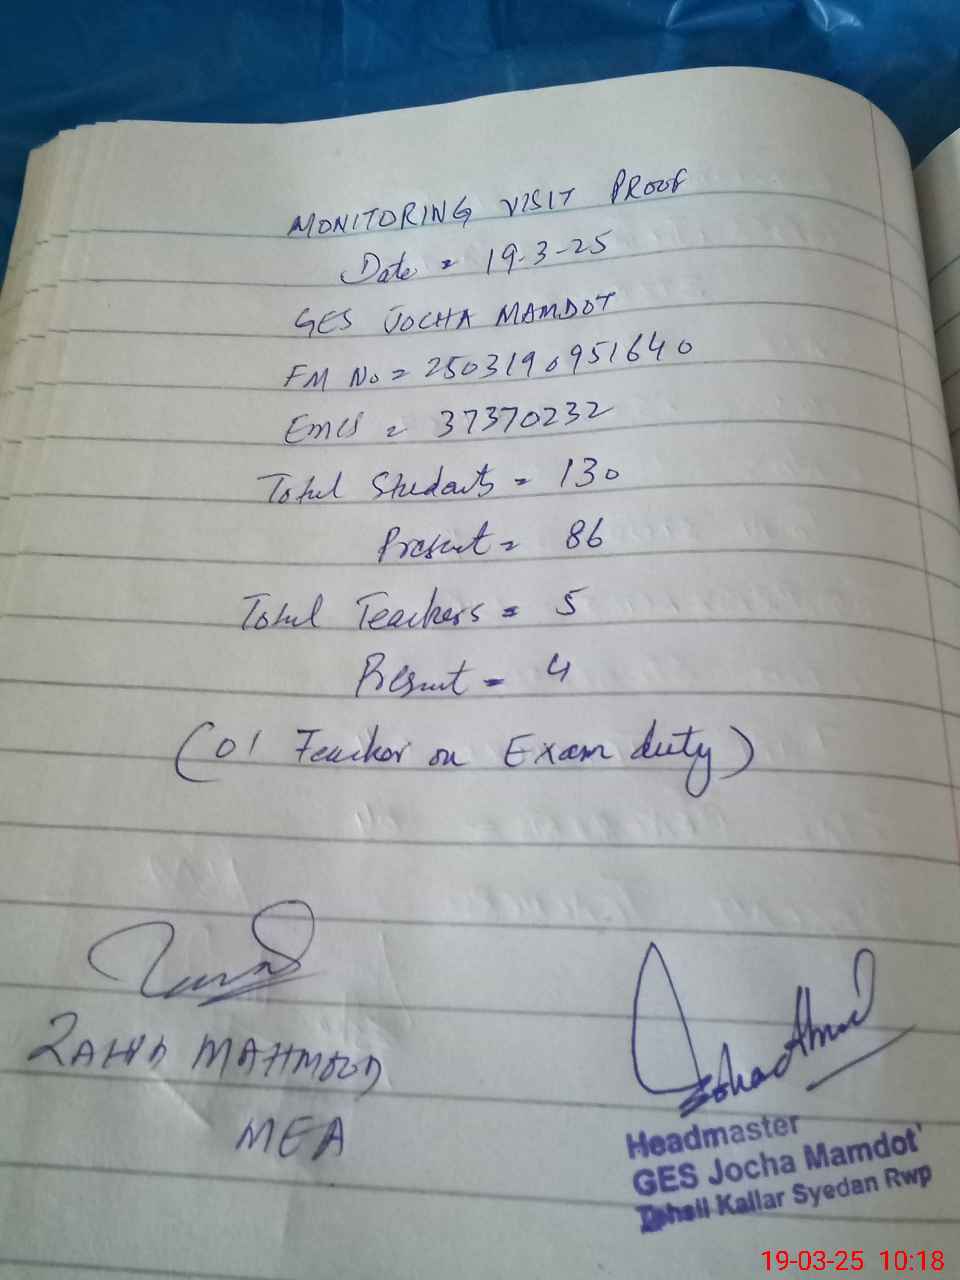 MONITORING VISIT PROOF
Date = 19-3-25
GES JOCHA MAMDOT
FM No = 2503190951640
EMIS = 37370232
Total Students = 130
Present = 86
Total Teachers = 5
Present = 4
(01 Teacher on Exam duty)
ZAHID MAHMOOD
MEA
Headmaster
GES Jocha Mamdot
Tehsil Kallar Syedan Rwp
19-03-25 10:18